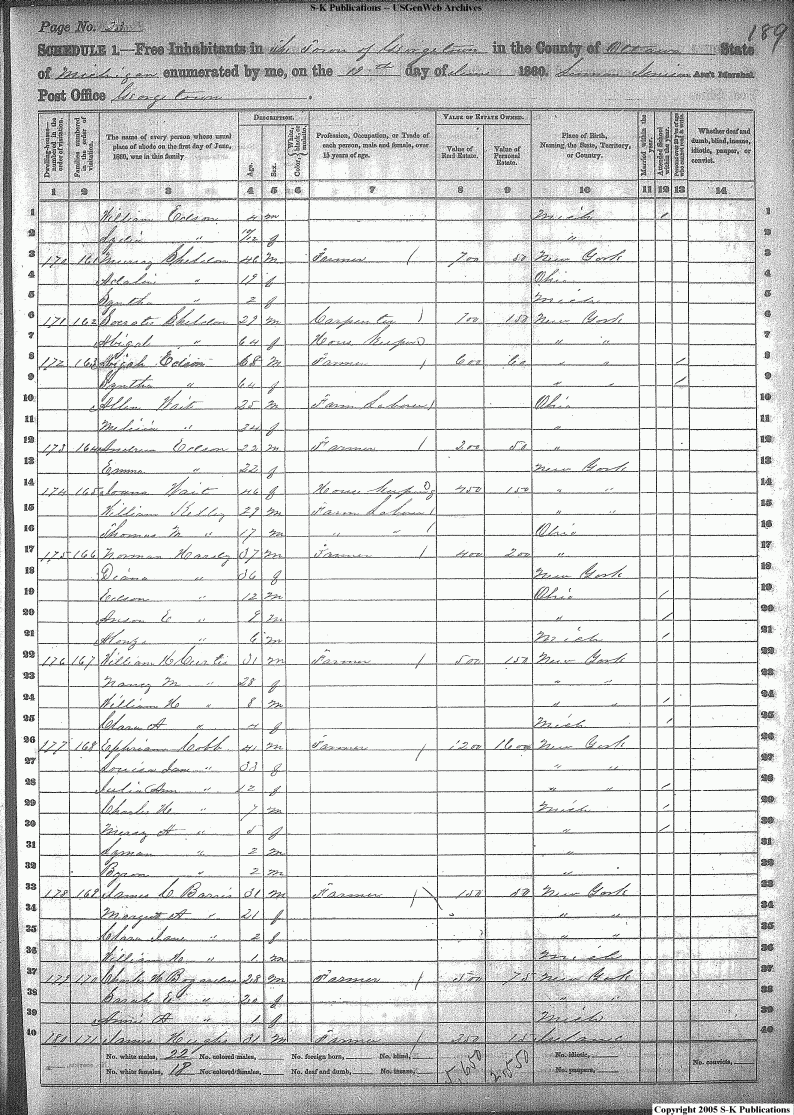 S-K Publications – USGenWeb Archives
Page No. 23
189
SCHEDULE 1.—Free Inhabitants in The Town of Georgetown in the County of Ottawa State
of Michigan enumerated by me, on the day of June 1860. Ass't Marshal.
Post Office Georgetown
Dwelling-houses—numbered in the order of visitation.
Families numbered in the order of visitation.
The name of every person whose usual place of abode on the first day of June, 1860, was in this family
DESCRIPTION.
Age.
Sex.
Color, White, black, or mulatto.
Profession, Occupation, or Trade of each person, male and female, over 15 years of age.
VALUE OF ESTATE OWNED.
Value of Real Estate.
Value of Personal Estate.
Place of Birth, Naming the State, Territory, or Country.
Married within the year.
Attended School within the year.
Persons over 20 y'rs of age who cannot read & write.
Whether deaf and dumb, blind, insane, idiotic, pauper, or convict.
1 2 3 4 5 6 7 8 9 10 11 12 13 14
1 William Edson 4 m Mich / 1
2 Lydia " /12 f " 2
3 170 161 Sheldon 46 m Farmer 700 50 New York 3
4 Adalin " 19 f Ohio 4
5 " 2 f Mich 5
6 171 162 Socrates Sheldon 29 m Carpenter 100 150 New York 6
7 Abigal " 64 f House Keeper " " 7
8 172 163 Abijah Edson 68 m Farmer 600 60 " " / 8
9 " 64 f " " / 9
10 Allen Wait 25 m Farm Laborer Ohio 10
11 " 24 f " 11
12 173 164 Andrew Edson 22 m Farmer 200 50 " 12
13 Emma " 22 f New York 13
14 174 165 Wait 46 f House Keeping 450 150 " " 14
15 William Kelley 29 m Farm Laborer " " 15
16 Thomas M " 17 m " " Ohio 16
17 175 166 Norman Hardy 37 m Farmer 400 200 " 17
18 Diana " 36 f New York 18
19 Edson " 12 m Ohio / 19
20 Anson E " 9 m " / 20
21 Alonzo " 6 m Mich / 21
22 176 167 William H Curtis 31 m Farmer 500 150 New York 22
23 Nancy M " 28 f " " 23
24 William H " 8 m " " / 24
25 Clara A " 4 f Mich / 25
26 177 168 Ephriam Cobb 41 m Farmer 1200 1600 New York 26
27 Louisa Jane " 33 f " " 27
28 Julia Ann " 12 f " " / 28
29 Charles H " 7 m Mich / 29
30 Mercy A " 5 f " / 30
31 Lyman " 2 m " 31
32 Byron " 2 m " 32
33 178 169 James C Barris 31 m Farmer 150 50 New York 33
34 Margrett A " 21 f " " 34
35 Clara Jane " 2 f " " 35
36 William H " 1 m Mich 36
37 179 170 Charles H Bogardus 28 m Farmer 500 75 New York 37
38 Sarah E " 20 f " " 38
39 Annis A " 1 f Mich 39
40 180 171 James Hughs 31 m Farmer 250 15 Ireland 40
No. white males, 22 No. colored males, No. foreign born, No. blind, 5,650 2,550 No. idiotic, No. convicts,
No. white females, 18 No. colored females, No. deaf and dumb, No. insane, No. paupers,
Copyright 2005 S-K Publications